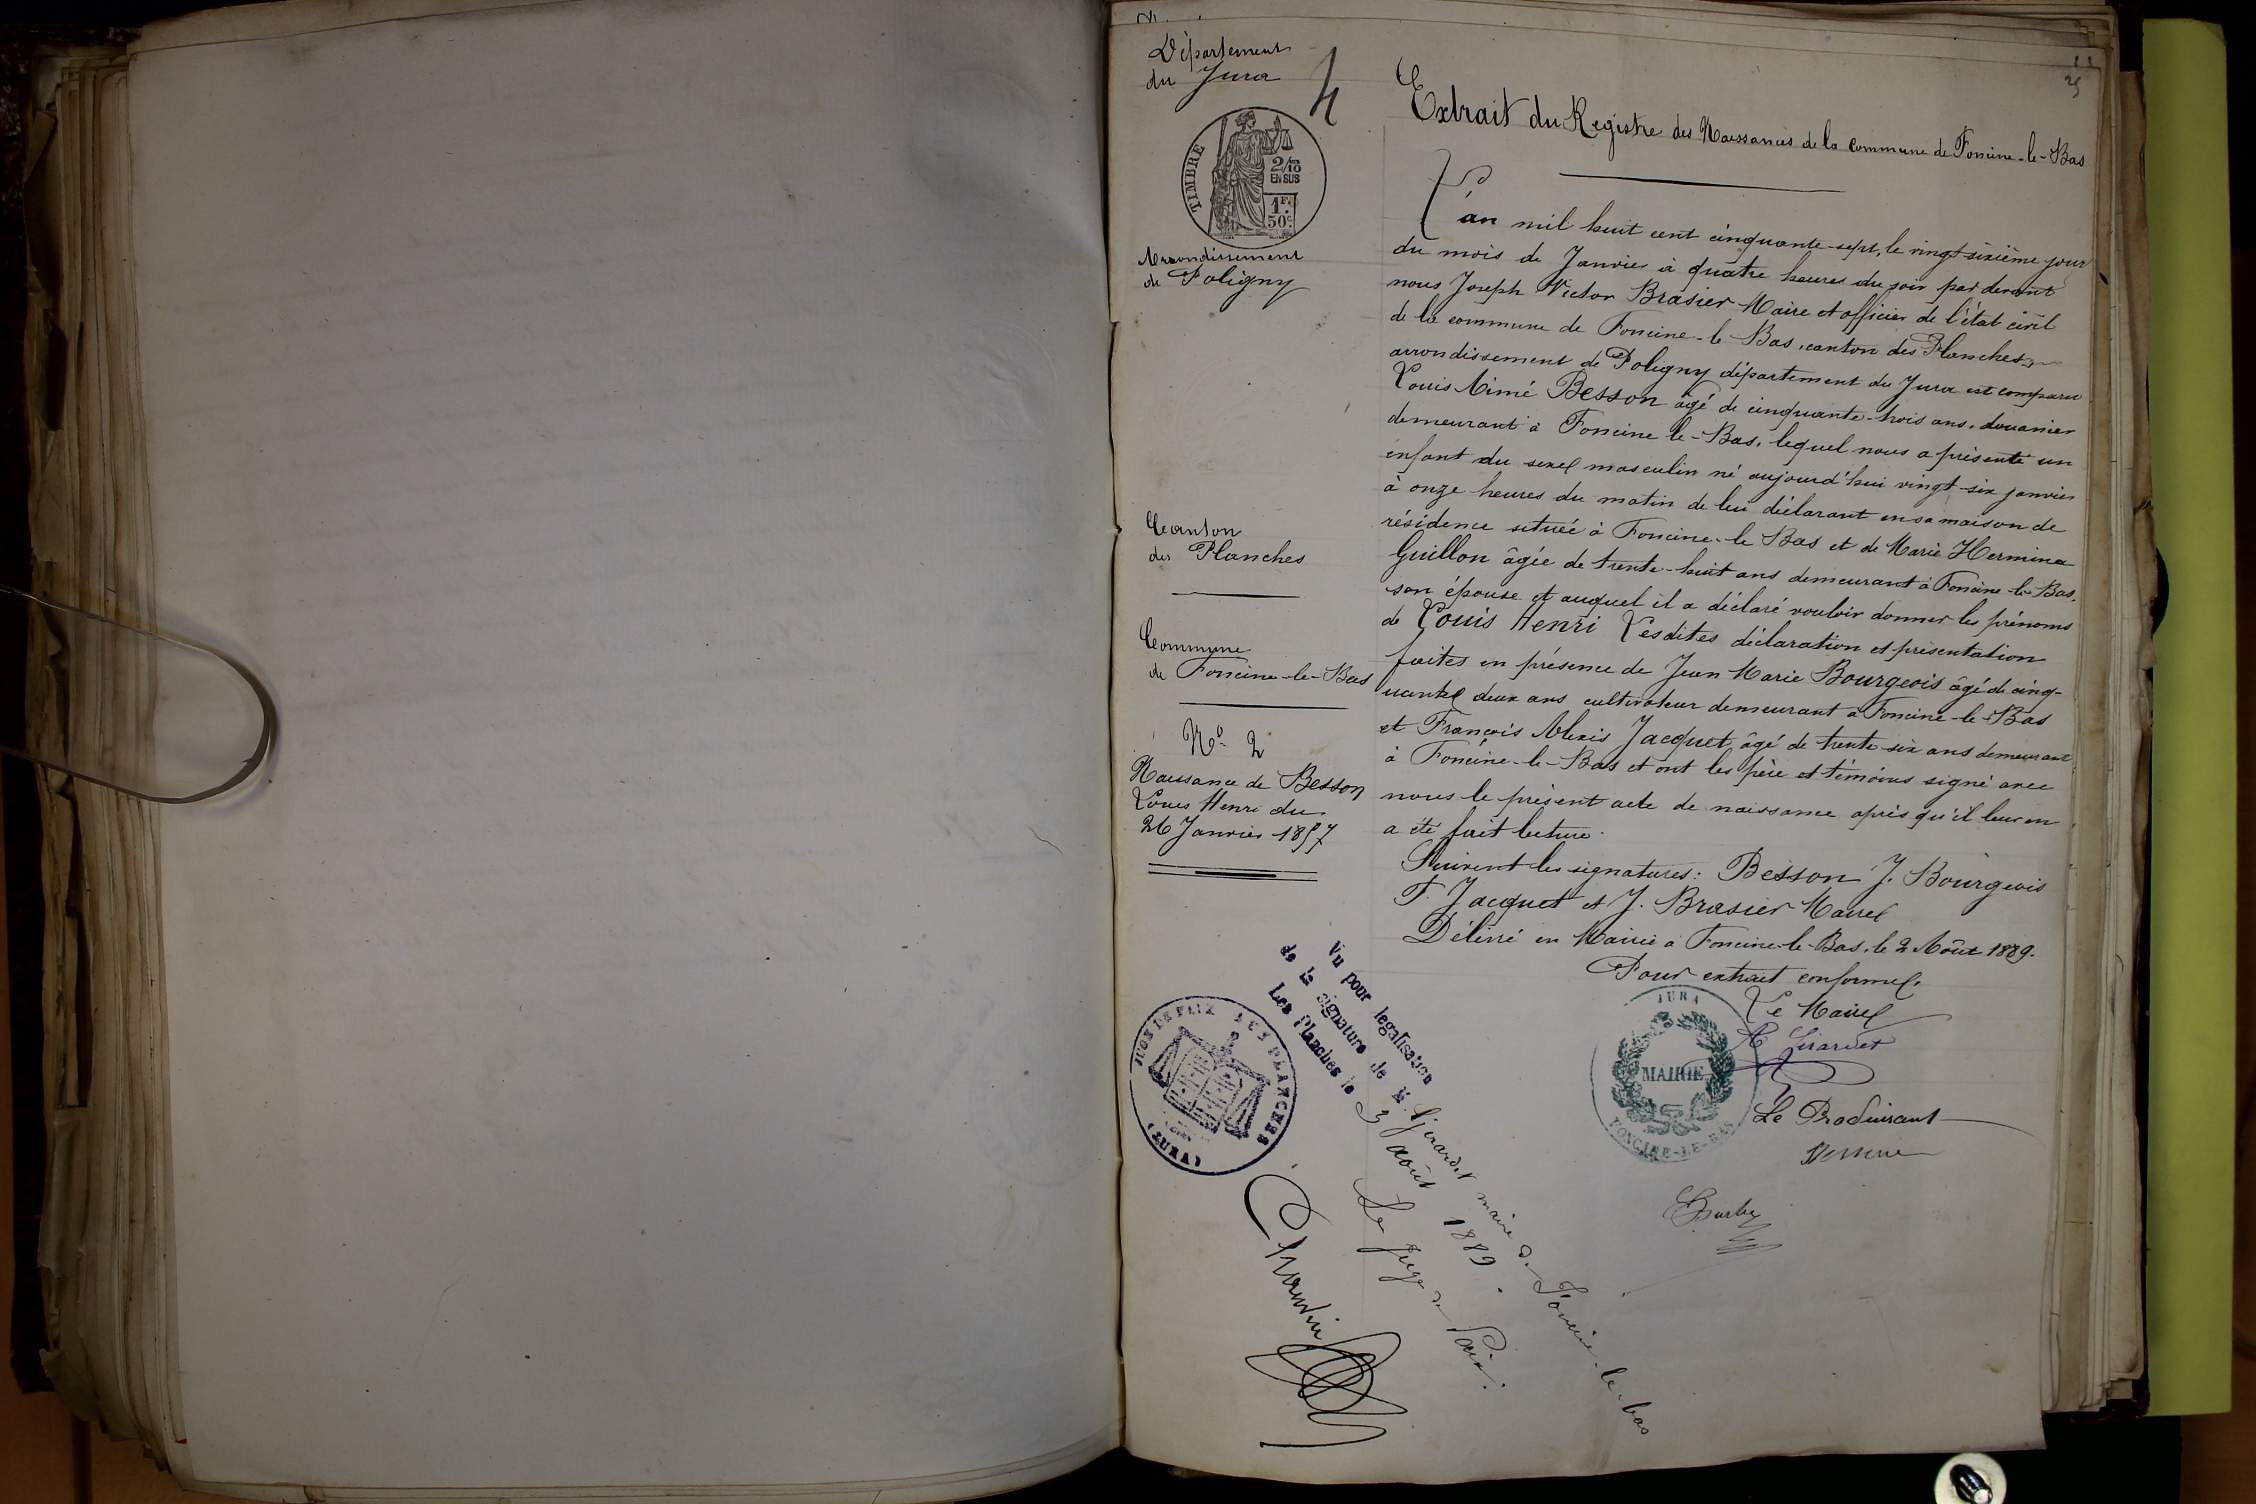 Département
du Jura
4
25
TIMBRE
2/10
EN SUS
1F.
50c.
Arrondissement
de Poligny
Canton
des Planches
Commune
de Foncine-le-Bas
No 2
Naissance de Besson
Louis Henri du
26 Janvier 1857
Extrait du Registre des Naissances de la Commune de Foncine-le-Bas
L'an mil huit cent cinquante-sept, le vingt-sixième jour
du mois de Janvier à quatre heures du soir par devant
nous Joseph Victor Brasier Maire et officier de l'état civil
de la commune de Foncine-le Bas, canton des Planches
arrondissement de Poligny département du Jura est comparu
Louis Aimé Besson âgé de cinquante-trois ans, douanier
demeurant à Foncine le-Bas, lequel nous a présenté un
enfant du sexe masculin né aujourd'hui vingt-six janvier
à onze heures du matin de lui déclarant en sa maison de
résidence située à Foncine-le Bas et de Marie Hermina
Guillon âgée de trente-huit ans demeurant à Foncine-le-Bas,
son épouse et auquel il a déclaré vouloir donner les prénoms
de Louis Henri Lesdites déclaration et présentation
faites en présence de Jean Marie Bourgeois âgé de cinq-
uante deux ans cultivateur demeurant à Foncine-le-Bas
et François Alexis Jacquet âgé de trente-six ans demeurant
à Foncine-le-Bas et ont les père et témoins signé avec
nous le présent acte de naissance après qu'il leur en
a été fait lecture.
Suivent les signatures: Besson J. Bourgeois
F. Jacquet et J. Brasier Maire
Délivré en Mairie à Foncine-le-Bas, le 2 Août 1889.
Pour extrait conforme,
Le Maire
A Girardet
JURA
MAIRIE
FONCINE-LE-BAS
Le Produisant
Vu pour legalisation
de la signature de M. Girardet maire de Foncine-le-bas
Les Planches le 3 août 1889.
Le Juge de Paix.
JUGE DE PAIX DES PLANCHES
(JURA)